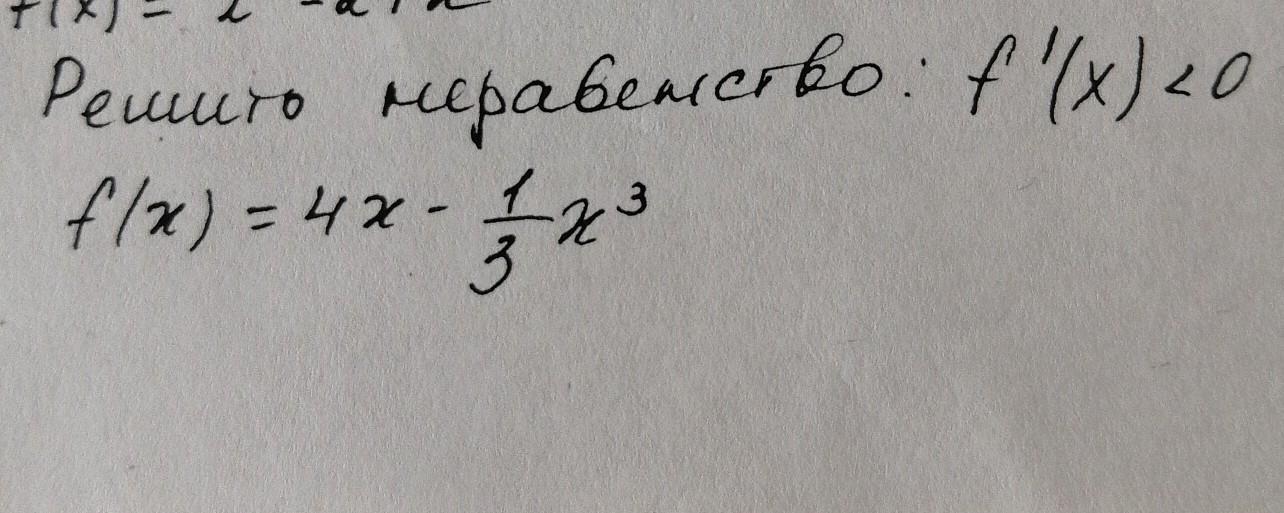 Решить неравенство: f'(x) < 0
f(x) = 4x - 1/3 x³